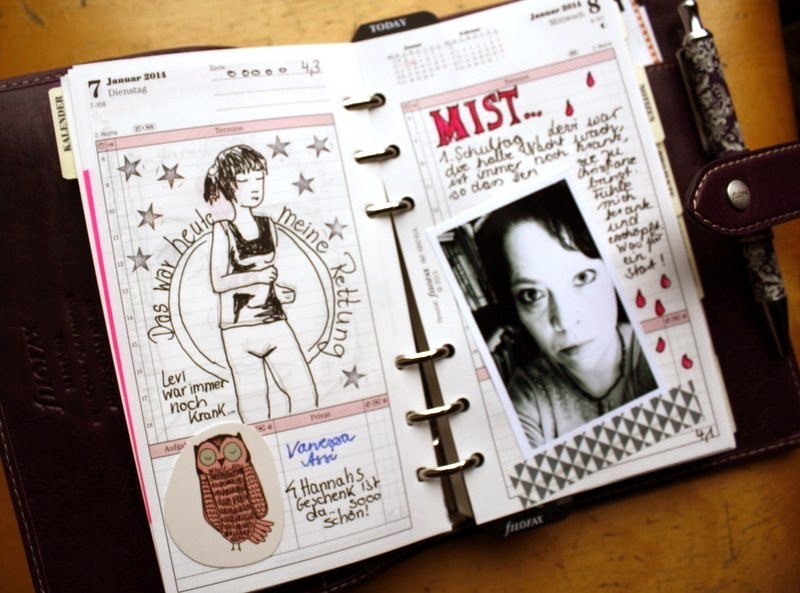 TODAY
KALENDER
7 Januar 2014
Dienstag
7-358
2. Woche
Ziele
4,3
Termine
Das war heute meine Rettung
Levi
war immer
noch
krank...
Aufgaben
Privat
Vanessa
Assi
Hannahs
Geschenk ist
da... sooo
schön!
filofax
Januar
Februar
Januar 2014 8
Mittwoch
2. Woche
Termine
MIST...
1. Schultag, Levi war
die halbe Nacht wach,
ist immer noch krank
so das ihn
Christiane
bringt.
Fühle
mich
krank
und
erschöpft.
Was für
ein
Start!
filofax
4,1
NOTIZEN
filofax
FILOFAX